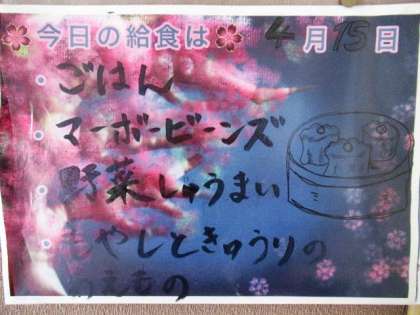 今日の給食は 4月15日
・ごはん
・マーボービーンズ
・野菜しゅうまい
・もやしときゅうりの
あえもの